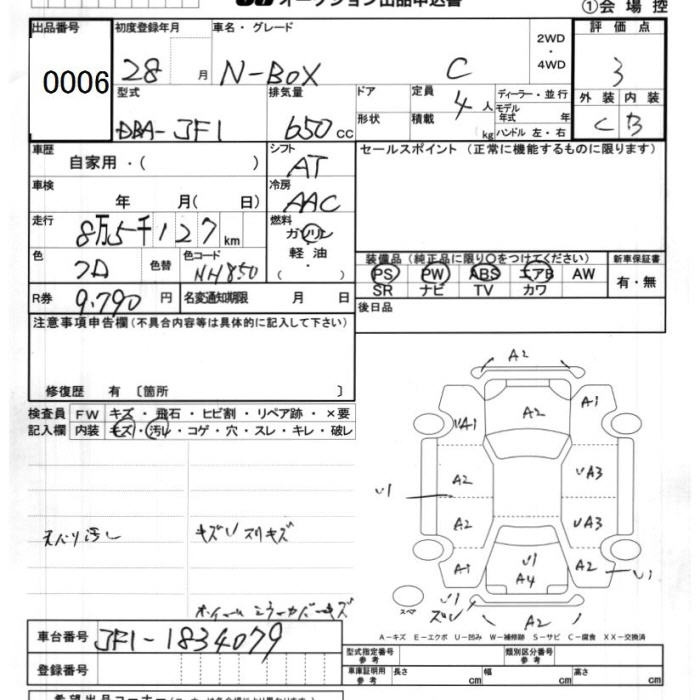 オークション出品申込書
①会場控
出品番号 初度登録年月 車名・グレード 2WD・4WD 評価点
0006 28 月 N-BOX C 3
型式 排気量 ドア 定員 ディーラー・並行 外装 内装
DBA-JF1 650cc 4人 モデル年式 年 C B
形状 積載 kg ハンドル 左・右
車歴 シフト セールスポイント (正常に機能するものに限ります)
自家用・( ) AT
車検 冷房
年 月( 日) AAC
走行 燃料
8万5千127km ガソリン
軽油
・( )
色 色替 色コード 装備品(純正品に限り○をつけてください) 新車保証書
フロ NH850 PS PW ABS エアB AW 有・無
SR ナビ TV カワ
R券 9,790円 名変通知期限 月 日 後日品
注意事項申告欄(不具合内容等は具体的に記入して下さい)
修復歴 有 〔箇所 〕
検査員 FW キズ・飛石・ヒビ割・リペア跡・×要
記入欄 内装 キズ・汚レ・コゲ・穴・スレ・キレ・破レ
天バリ汚レ キズU スリキズ
ホイール ミラーカバーキズ
A2
A2
A1
UA1
A2
UA3
U1
A2
UA3
A1
U1
A4
A2
U1
スペ
U1
ズレ
A2
A-キズ E-エクボ U-凹み W-補修跡 S-サビ C-腐食 XX-交換済
車台番号 JF1-1834079
型式指定番号 参考 類別区分番号 参考
登録番号
車庫証明用 参考 長さ cm 幅 cm 高さ cm
希望出品コーナー